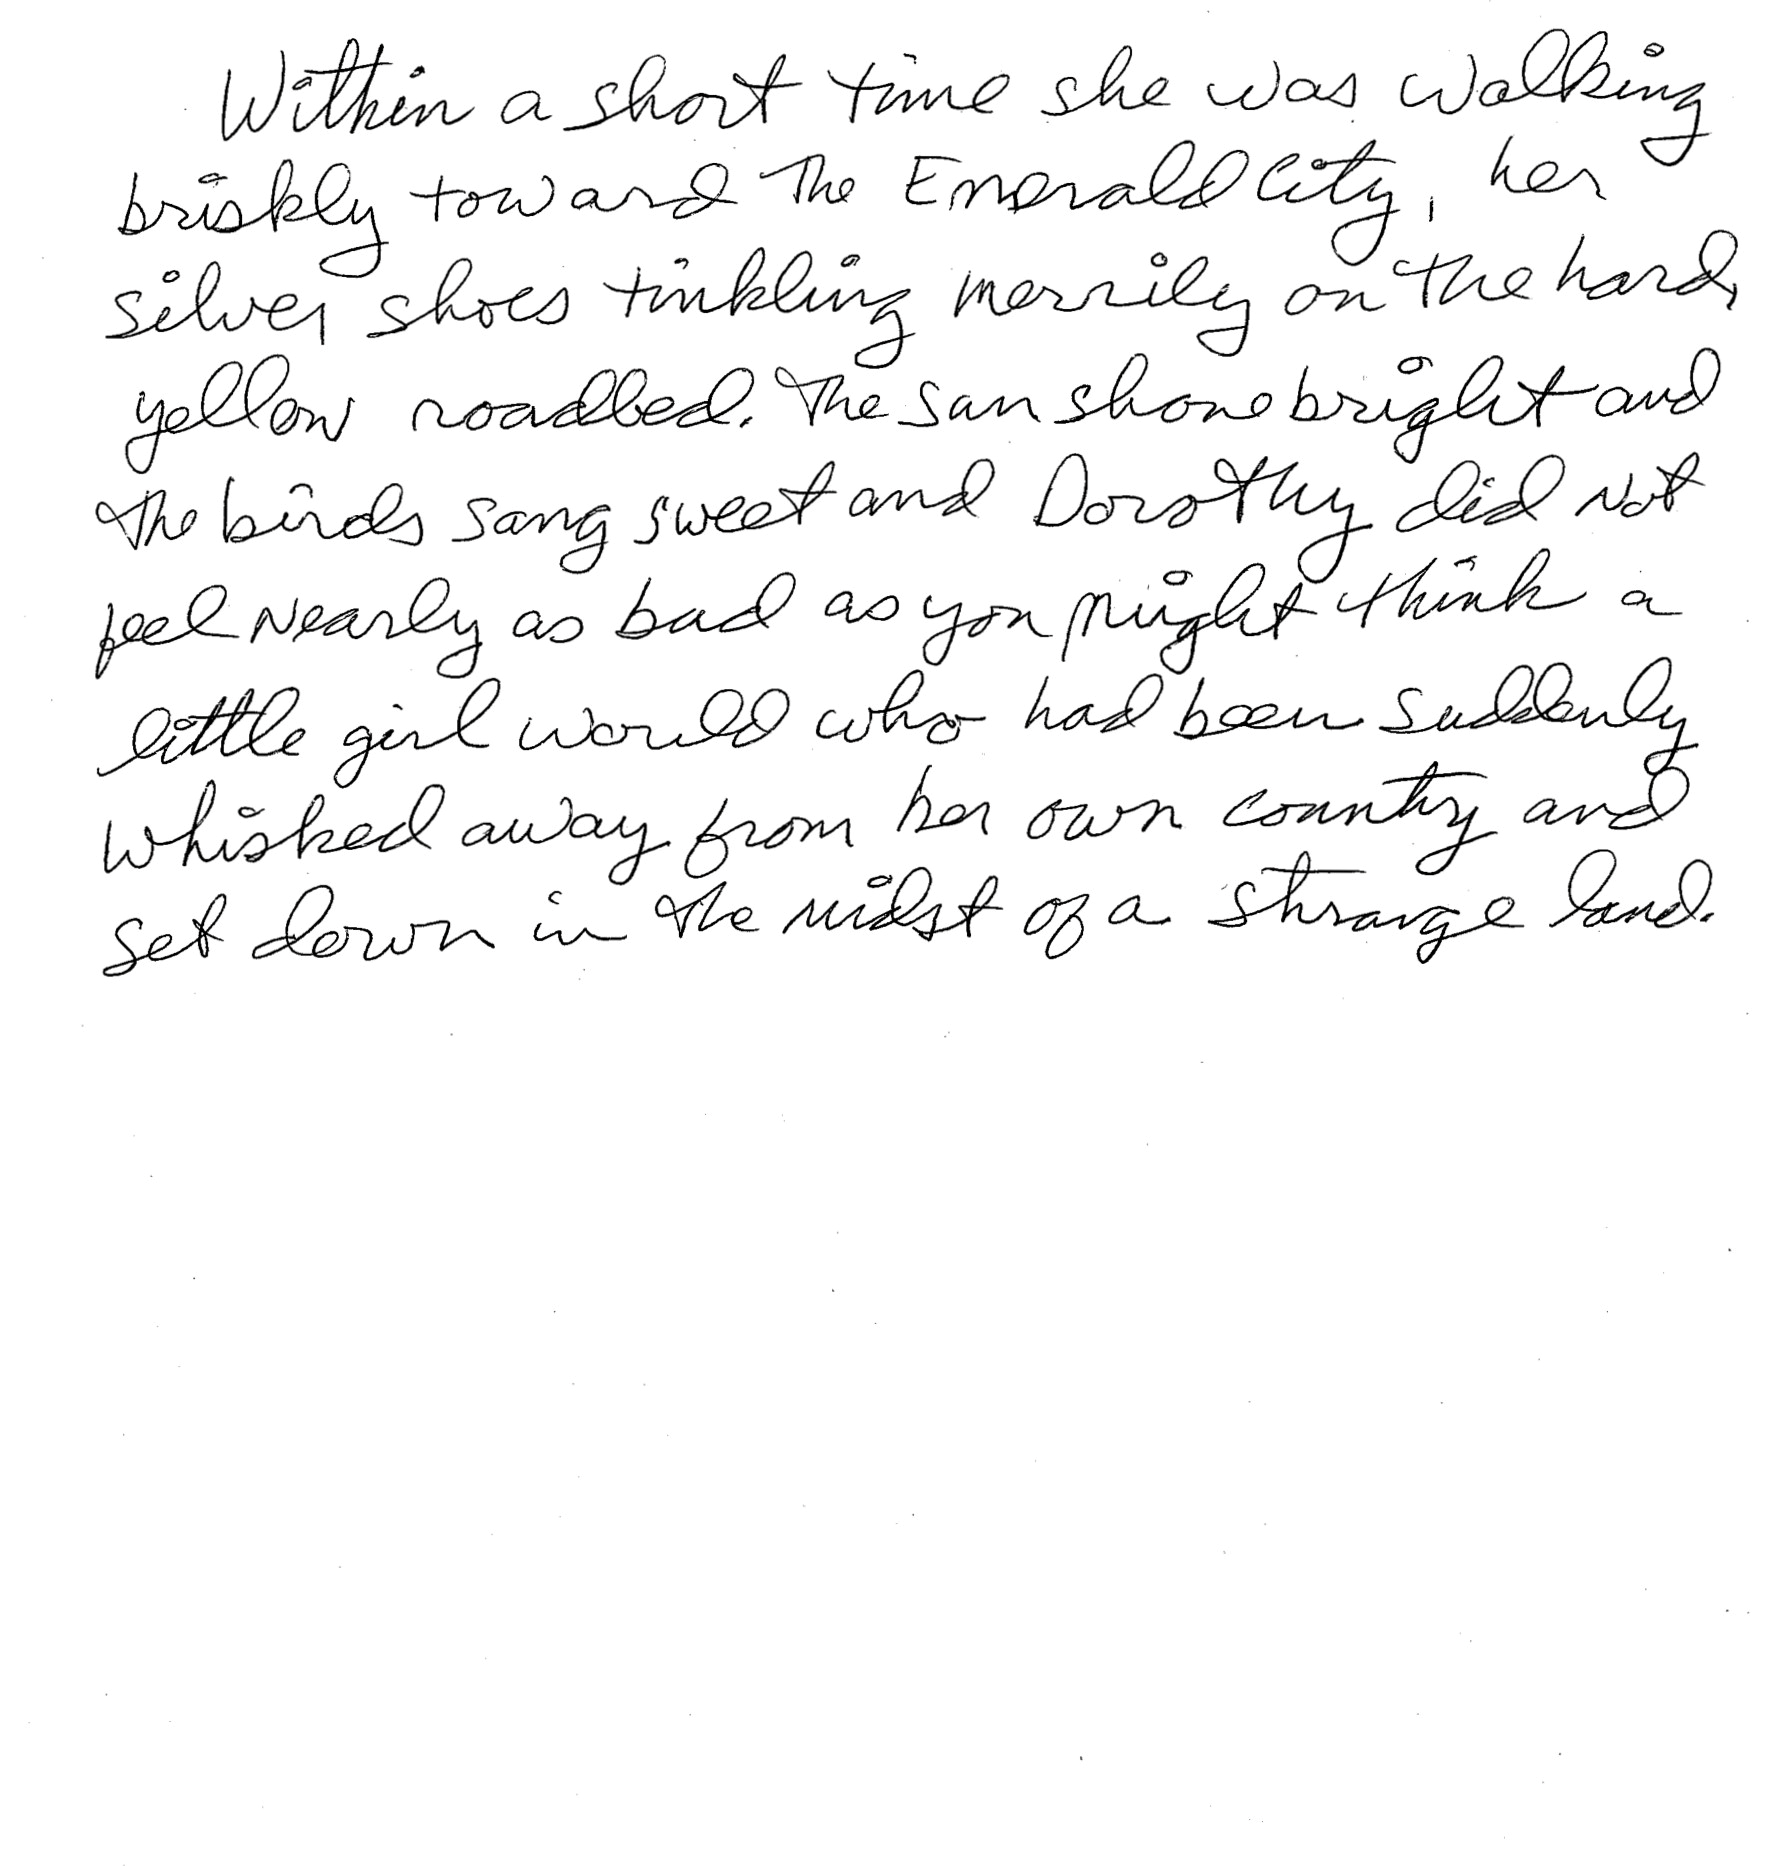 Within a short time she was walking
briskly toward The Emerald City, her
silver shoes tinkling merrily on the hard,
yellow roadbed. The sun shone bright and
the birds sang sweet and Dorothy did not
feel nearly as bad as you might think a
little girl would who had been suddenly
whisked away from her own country and
set down in the midst of a strange land.